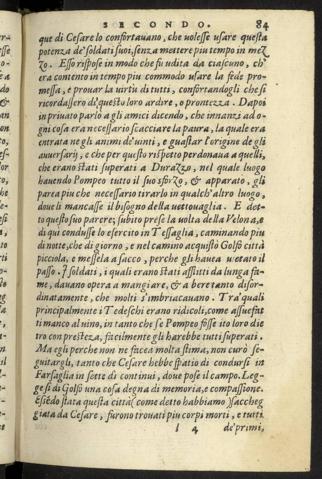 SECONDO. 84
que di Cesare lo confortauano, che uolesse usare questa
potenza de' soldati suoi, senza mettere piu tempo in mez
zo. Esso rispose in modo che fu udita da ciascuno, ch'
era contento in tempo piu commodo usare la fede pro-
messa, e prouar la uirtù di tutti, confortandogli che si
ricordassero di questo loro ardire, o prontezza. Dapoi
in priuato parlò a gli amici dicendo, che innanzi ad o-
gni cosa era necessario scacciare la paura, la quale era
entrata negli animi de'uinti, e guastar l'origine de gli
auuersarij, e che per questo rispetto perdonaua a quelli,
che erano stati superati a Durazzo, nel quale luogo
hauendo Pompeo tutto il suo sforzo, & apparato, gli
parea piu che necessario tirarlo in qualch'altro luogo,
doue li mancasse il bisogno della uettouaglia. E det-
to questo suo parere, subito prese la uolta della Velona, e
di qui condusse lo esercito in Tessaglia, caminando piu
di notte, che di giorno, e nel camino acquistò Golfò città
picciola, e messela a sacco, perche gli hauea uetato il
passo. I soldati, i quali erano stati afflitti da lunga fa-
me, dauano opera a mangiare, & a bere tanto disor-
dinatamente, che molti s'imbriacauano. Tra'quali
principalmente i Tedeschi erano ridicoli, come assuefat
ti manco al uino, in tanto che se Pompeo fosse ito loro die
tro con prestezza, facilmente gli harebbe tutti superati.
Ma egli perche non ne facea molta stima, non curò se-
guitargli, tanto che Cesare hebbe spatio di condursi in
Farsaglia in sette dì continui, doue pose il campo. Leg-
gesi di Golfò una cosa degna di memoria, e compassione.
essendo stata questa città (come detto habbiamo) saccheg
giata da Cesare, furono trouati piu corpi morti, e tutti
l 4 de'primi,